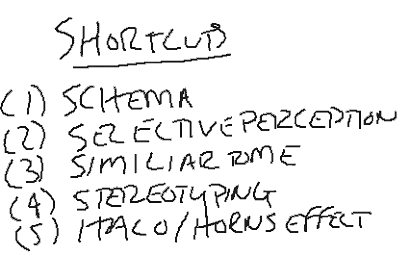 SHORTCUTS
(1) SCHEMA
(2) SELECTIVE PERCEPTION
(3) SIMILIAR TO ME
(4) STEREOTYPING
(5) HALO/HORNS EFFECT